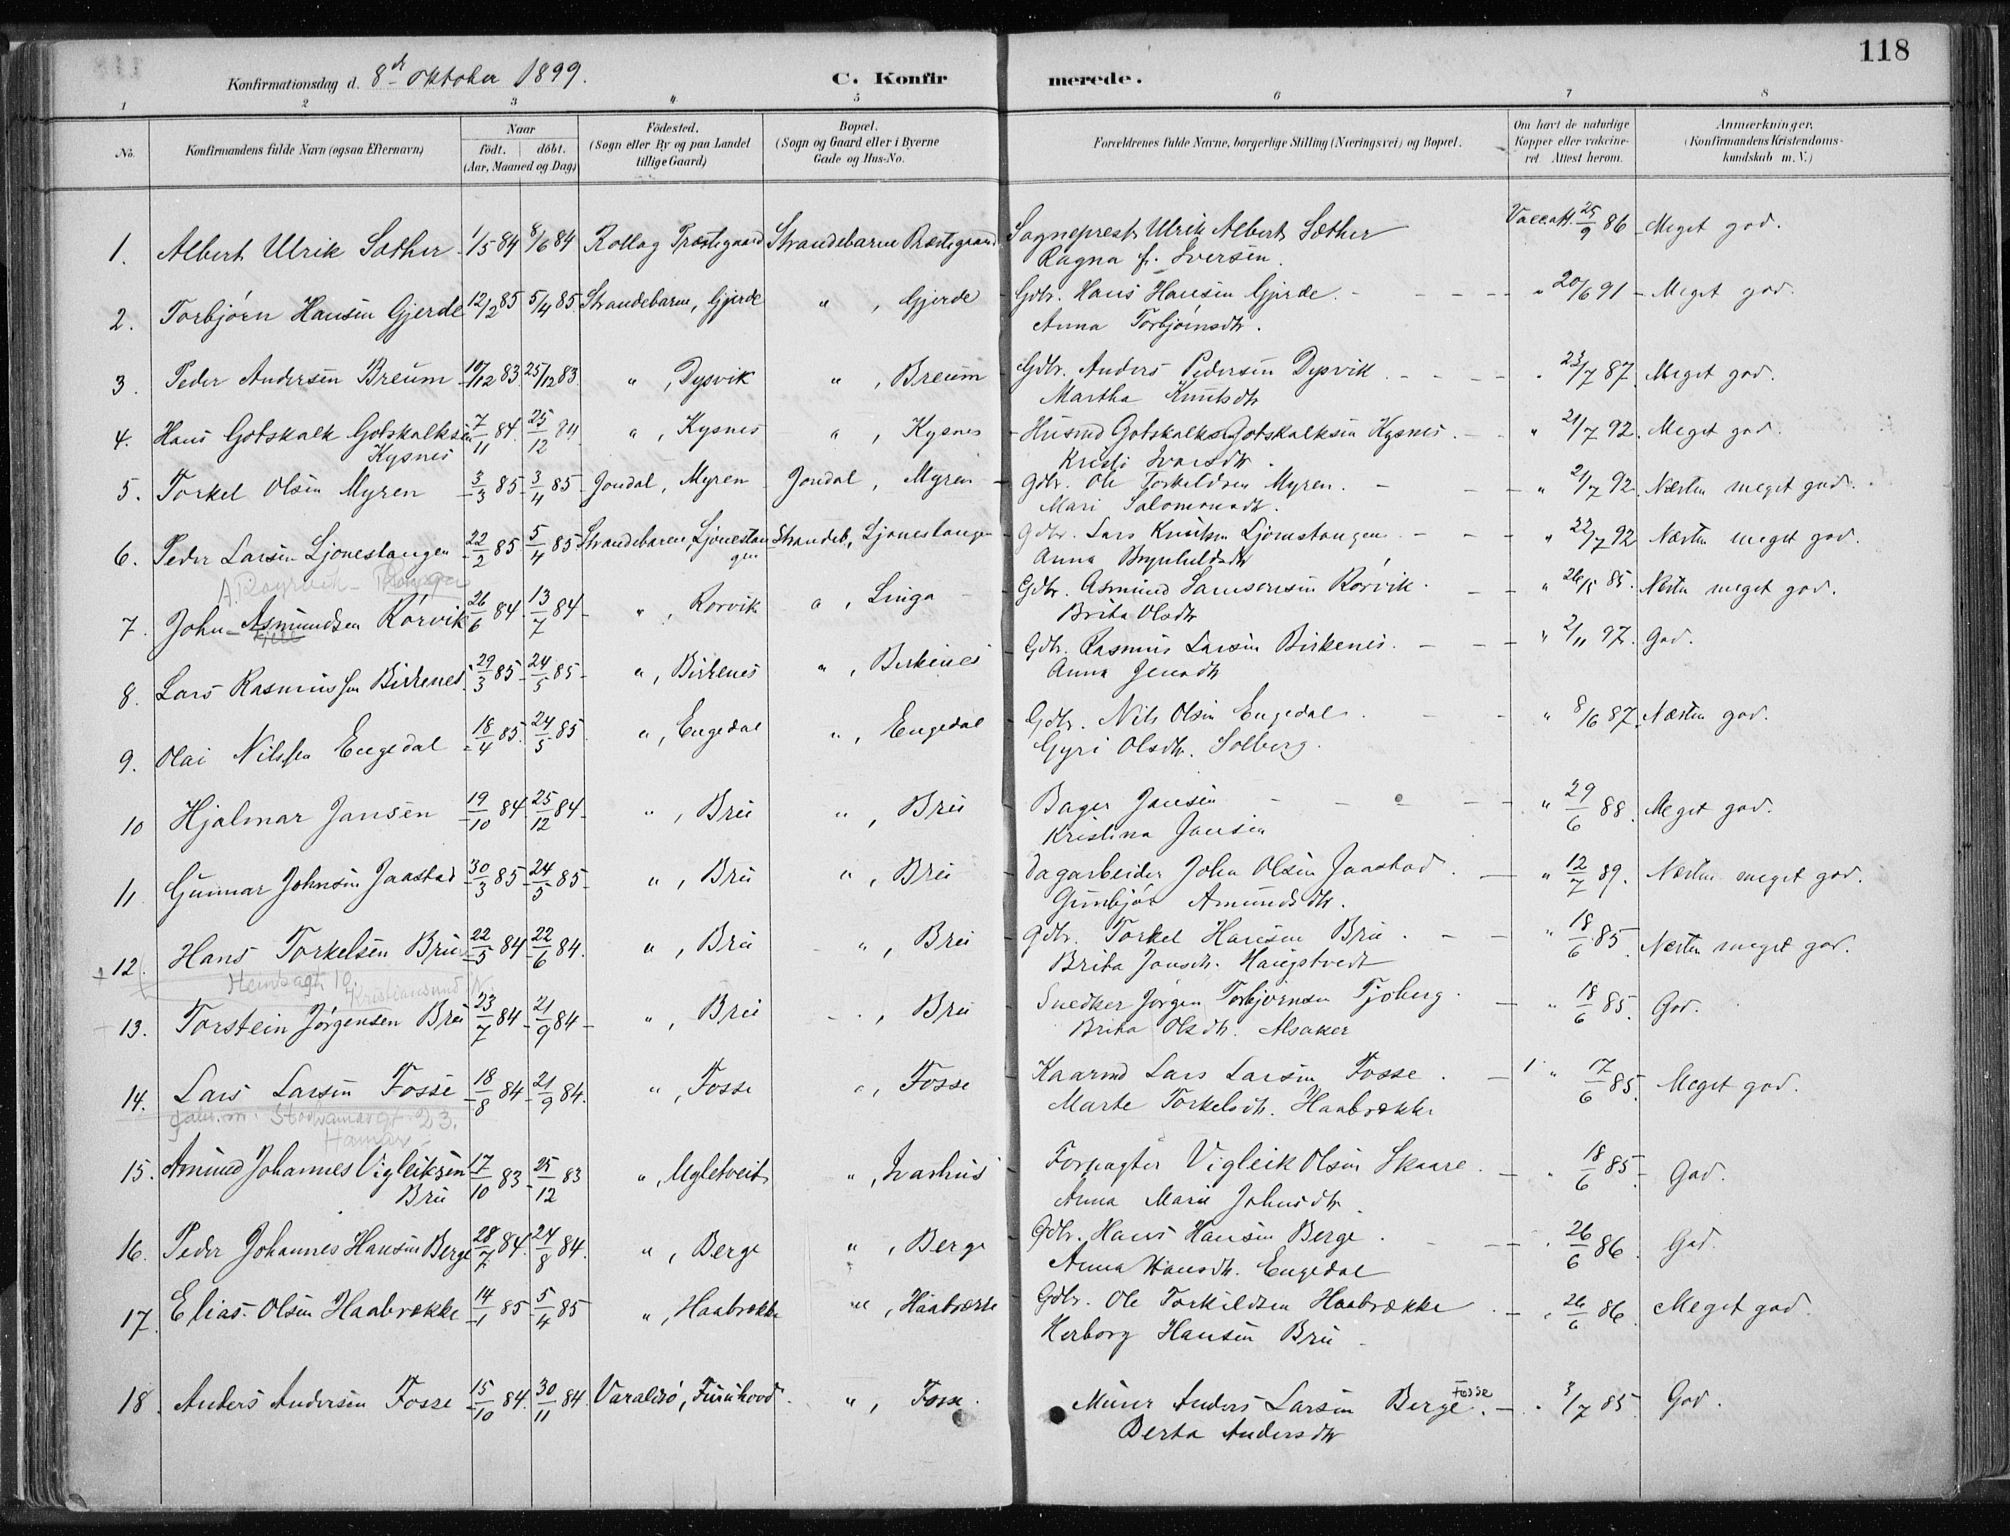 118
Konfirmationsdag d. 8de oktober 1899. C. Konfirmerede.
1 2 3 4 5 6 7 8
No. Konfirmandens fulde Navn (ogsaa Efternavn) Naar født. døbt. (Aar, Maaned og Dag) Fødested. (Sogn eller By og paa Landet tillige Gaard) Bopæl. (Sogn og Gaard eller i Byerne Gade og Hus-No. Forældrenes fulde Navne, borgerlige Stilling (Næringsvei) og Bopæl. Om havt de naturlige Kopper eller vakcineret. Attest herom. Anmærkninger. (Konfirmandens Kristendomskundskab m. V.)
1. Albert Ulrik Sæther 1/5 84 8/6 84 Rollag Præstegaard Strandebarm Præstegaard Sogneprest Ulrik Albert Sæther Vaccatt. 25/9 86 Meget god.
Ragna f. Iversen.
2. Torbjørn Hansen Gjerde 12/2 85 5/4 85 Strandebarm, Gjerde " , Gjerde Gdbr. Hans Hansen Gjerde. " 20/6 91 Meget god.
Anna Torbjørnsdtr.
3. Peder Andersen Breum 10/12 83 25/12 83. " , Dysvik " , Breum Gdbr. Anders Pedersen Dysvik " 23/7 87. Meget god.
Martha Knutsdtr
4. Hans Gotskalk Gotskalksen 7/11 84. 25/12 84 " , Kysnes " , Kysnes Husmd Gotskalk Gotskalksen Kysnes " 21/7 92. Meget god.
Kysnes Kristi Ivarsdtr.
5. Torkel Olsen Myren 3/3 85 3/4 85 Jondal, Myren Jondal, Myren Gdbr. Ole Torkildsen Myren. " 21/7 92. Næsten meget god.
Mari Salomonsdtr.
6. Peder Larsen Ljonestangen 22/2 85 5/4 85 Strandebarm, Ljonestangen Strandeb., Ljonestangen Gdbr. Lars Knutsen Ljonestangen " 22/7 92 Næsten meget god.
Anna Brynhildsdtr
7. John Asmundsen Rørvik 26/6 84 13/7 84 " , Rørvik " , Linga Gdbr. Asmund Samsonsen Rørvik. " 26/8 85. Næsten meget god.
Brita Olsdtr
8. Lars Rasmussen Birkenes 29/3 85 24/5 85 " , Birkenes " , Birkenes Gdbr. Rasmus Larsen Birkenes. " 2/11 97. God.
Anna Jensdtr
9. Olai Nilssen Engedal 18/4 85. 24/5 85 " , Engedal " , Engedal Gdbr. Nils Olsen Engedal. " 8/6 87. Næsten god.
Gyri Olsdtr. Solberg.
10 Hjalmar Jansen 19/10 84 25/12 84 " , Bru " , Bru Bager Jansen " 29/6 88. Meget god.
Kristina Jansen
11 Gunnar Johnsen Jaastad 30/3 85 24/5 85 " , Bru " , Bru Dagarbeider John Olsen Jaastad " 12/7 89. Næsten meget god.
Gunbjør Amundsdtr.
12. Hans Torkelsen Bru 22/5 84 22/6 84. " , Bru " , Bru Gdbr. Torkel Hansen Bru " 18/6 85. Næsten meget god.
Brita Jonsdtr. Haugstvedt
Kristiansund N.
13. Torstein Jørgensen Bru 23/7 84 21/9 84 " , Bru " , Bru Snedker Jørgen Torbjørnsen Tjoberg. " 18/6 85. God.
Brita Olsdtr. Alsaker
14. Lars Larsen Fosse 18/8 84 21/9 84. " , Fosse " , Fosse Kaarmd Lars Larsen Fosse. 1 " 17/6 85. Meget god.
Marte Torkelsdtr. Haabrække
Hamar
15. Amund Johannes Vigleiksen 17/10 83 25/12 83 " , Ugletveit " , Ivarhus Forpagter Vigleik Olsen Skaare. " 18/6 85 God.
Bru Anna Marie Johnsdtr.
16. Peder Johannes Hansen Berge 28/7 84. 24/8 84. " , Berge " , Berge Gdbr. Hans Hansen Berge. " 26/6 86. God.
Anna Hansdtr. Engedal
17. Elias Olsen Haabrække 14/1 85 5/4 85 " , Haabrække " , Haabrække Gdbr. Ole Torkildsen Haabrække " 26/6 86. Meget god.
Herborg Hansen Bru
18. Anders Andersen Fosse 15/10 84. 30/11 84 Varaldsø, Furuhovd. " , Fosse. Minør Anders Larsen Berge. Fosse " 3/7 85. God.
Berta Andersdtr